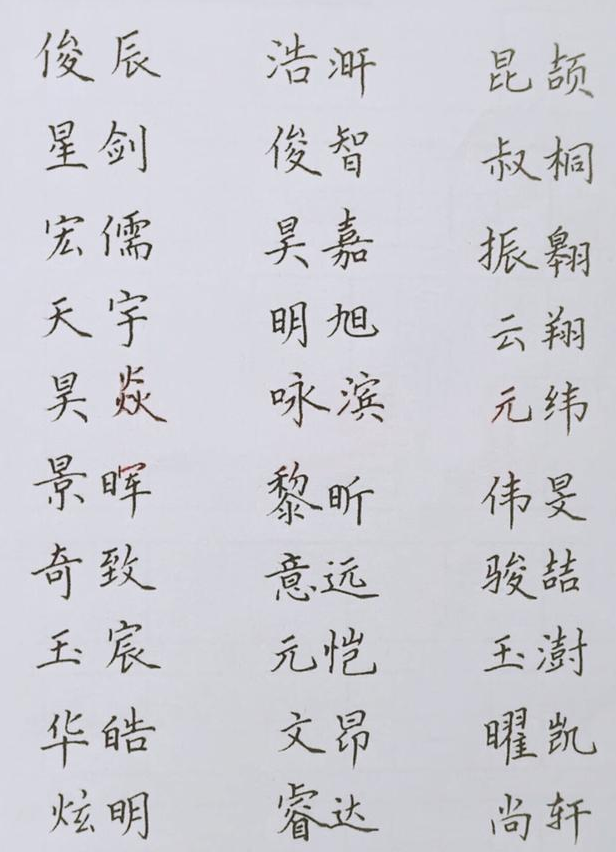 俊辰 浩湃 昆颉
星剑 俊智 叔桐
宏儒 昊嘉 振翱
天宇 明旭 云翔
昊焱 咏滨 元纬
景晖 黎昕 伟旻
奇致 意远 骏喆
玉宸 元恺 玉澍
华皓 文昂 曜凯
炫明 睿达 尚轩